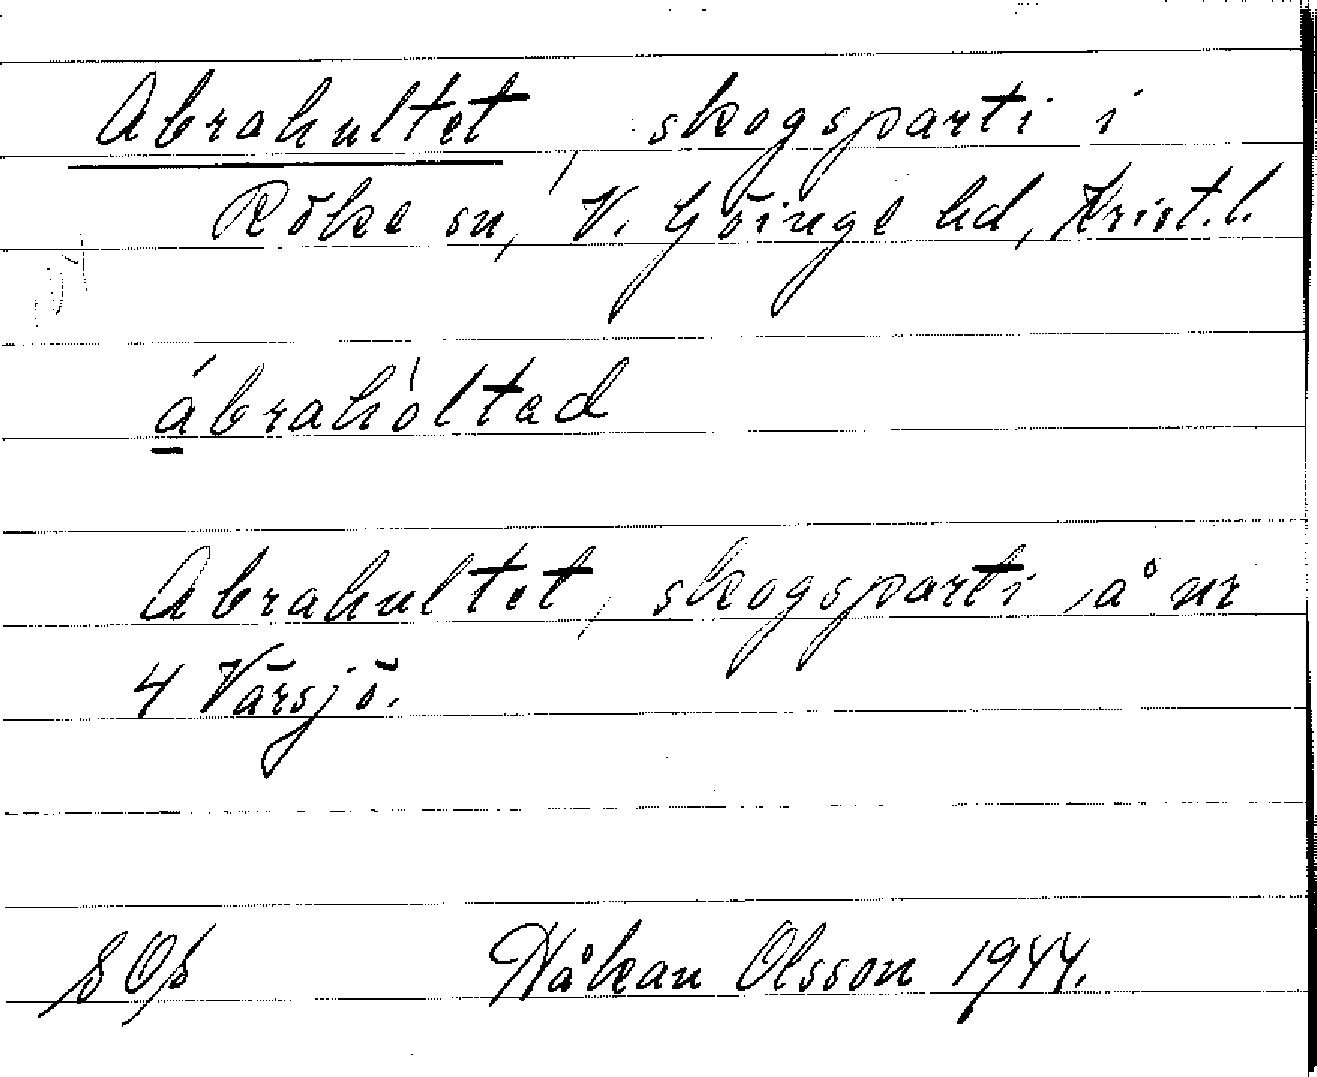 Abrahultet, skogsparti i
Röke sn, V. Göinge hd, Krist.l.
ábrahòltad
Abrahultet, skogsparti, å nr
4 Värsjö.
Håkan Olsson 1944.